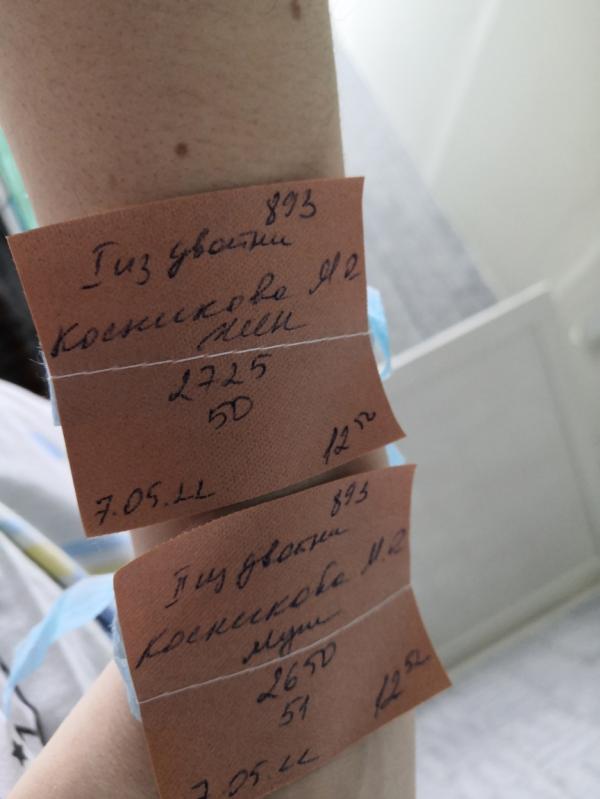 893
I из двойни
Косникова Я О
жен
2725
50
12⁵⁰
7.05.22
893
II из двойни
Косникова М.О
муж
2650
51
12⁵²
7.05.22